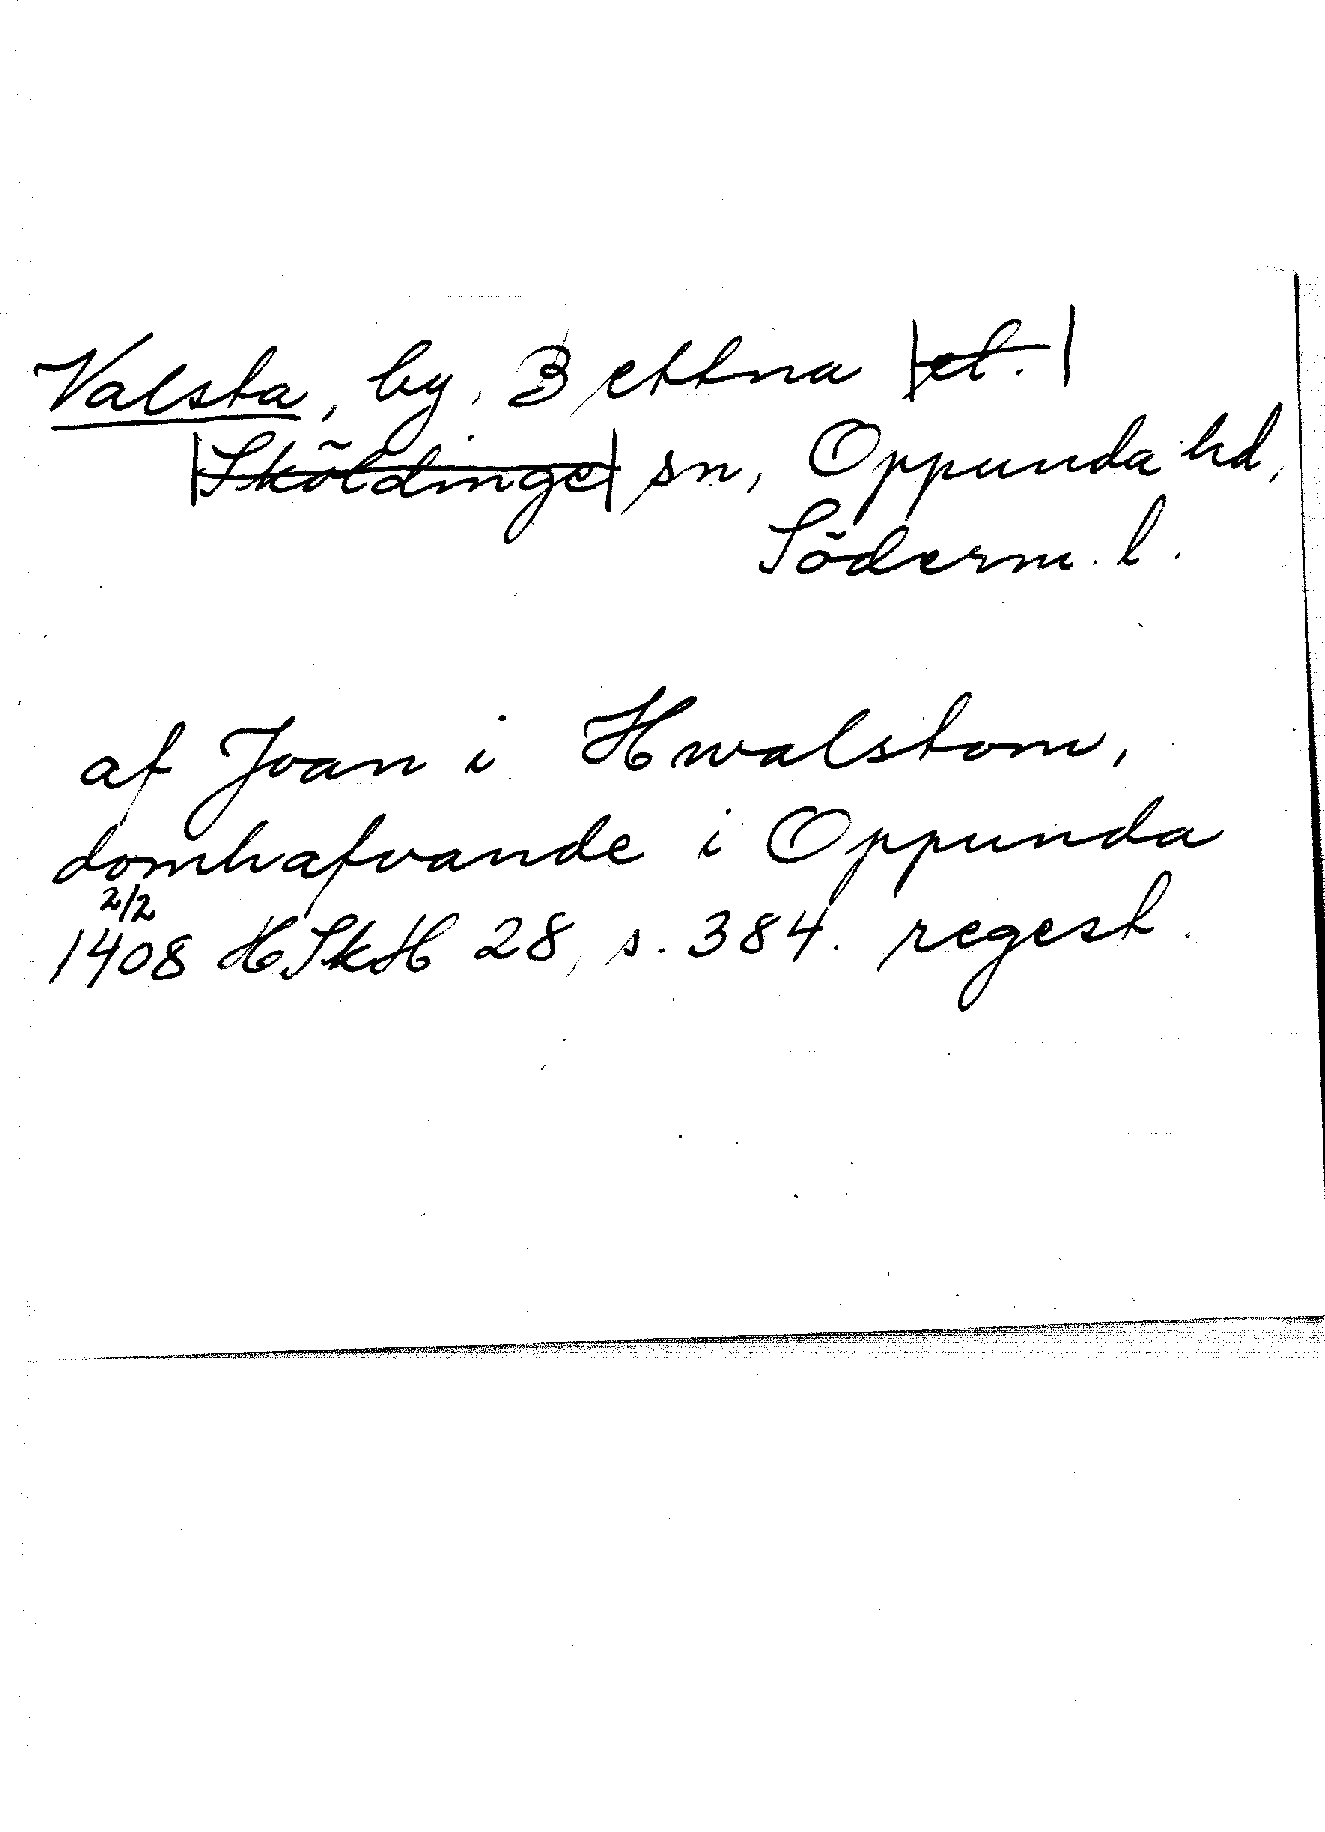 Valsta, by, Bettna |el.|
|Sköldinge| sn, Oppunda hd,
Söderm. l.
af Joan i Hwalstom,
domhafvande i Oppunda
2/2
1408 HSkH 28, s. 384. regest.